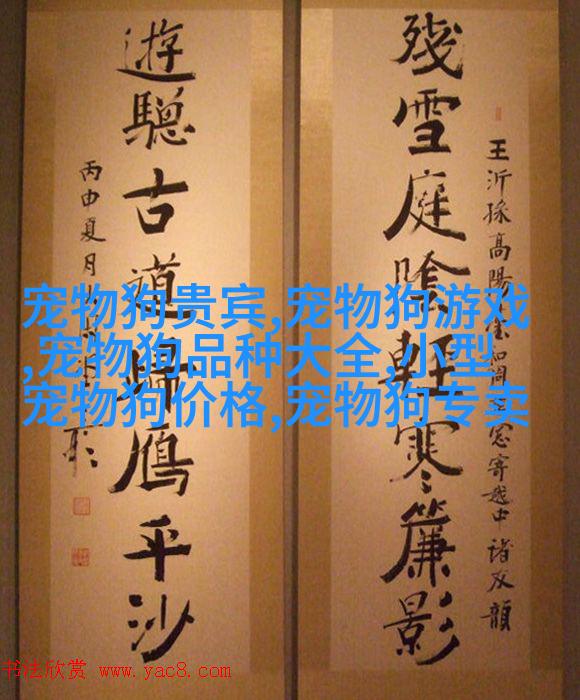 王沂孫高陽臺和周草窓寄越中諸友韻
殘雪庭陰輕寒簾影
遊驄古道歸鴈平沙
丙申夏月
宠物狗贵宾,宠物狗游戏
,宠物狗品种大全,小型
宠物狗价格,宠物狗专卖
书法欣赏 www.yac8.com